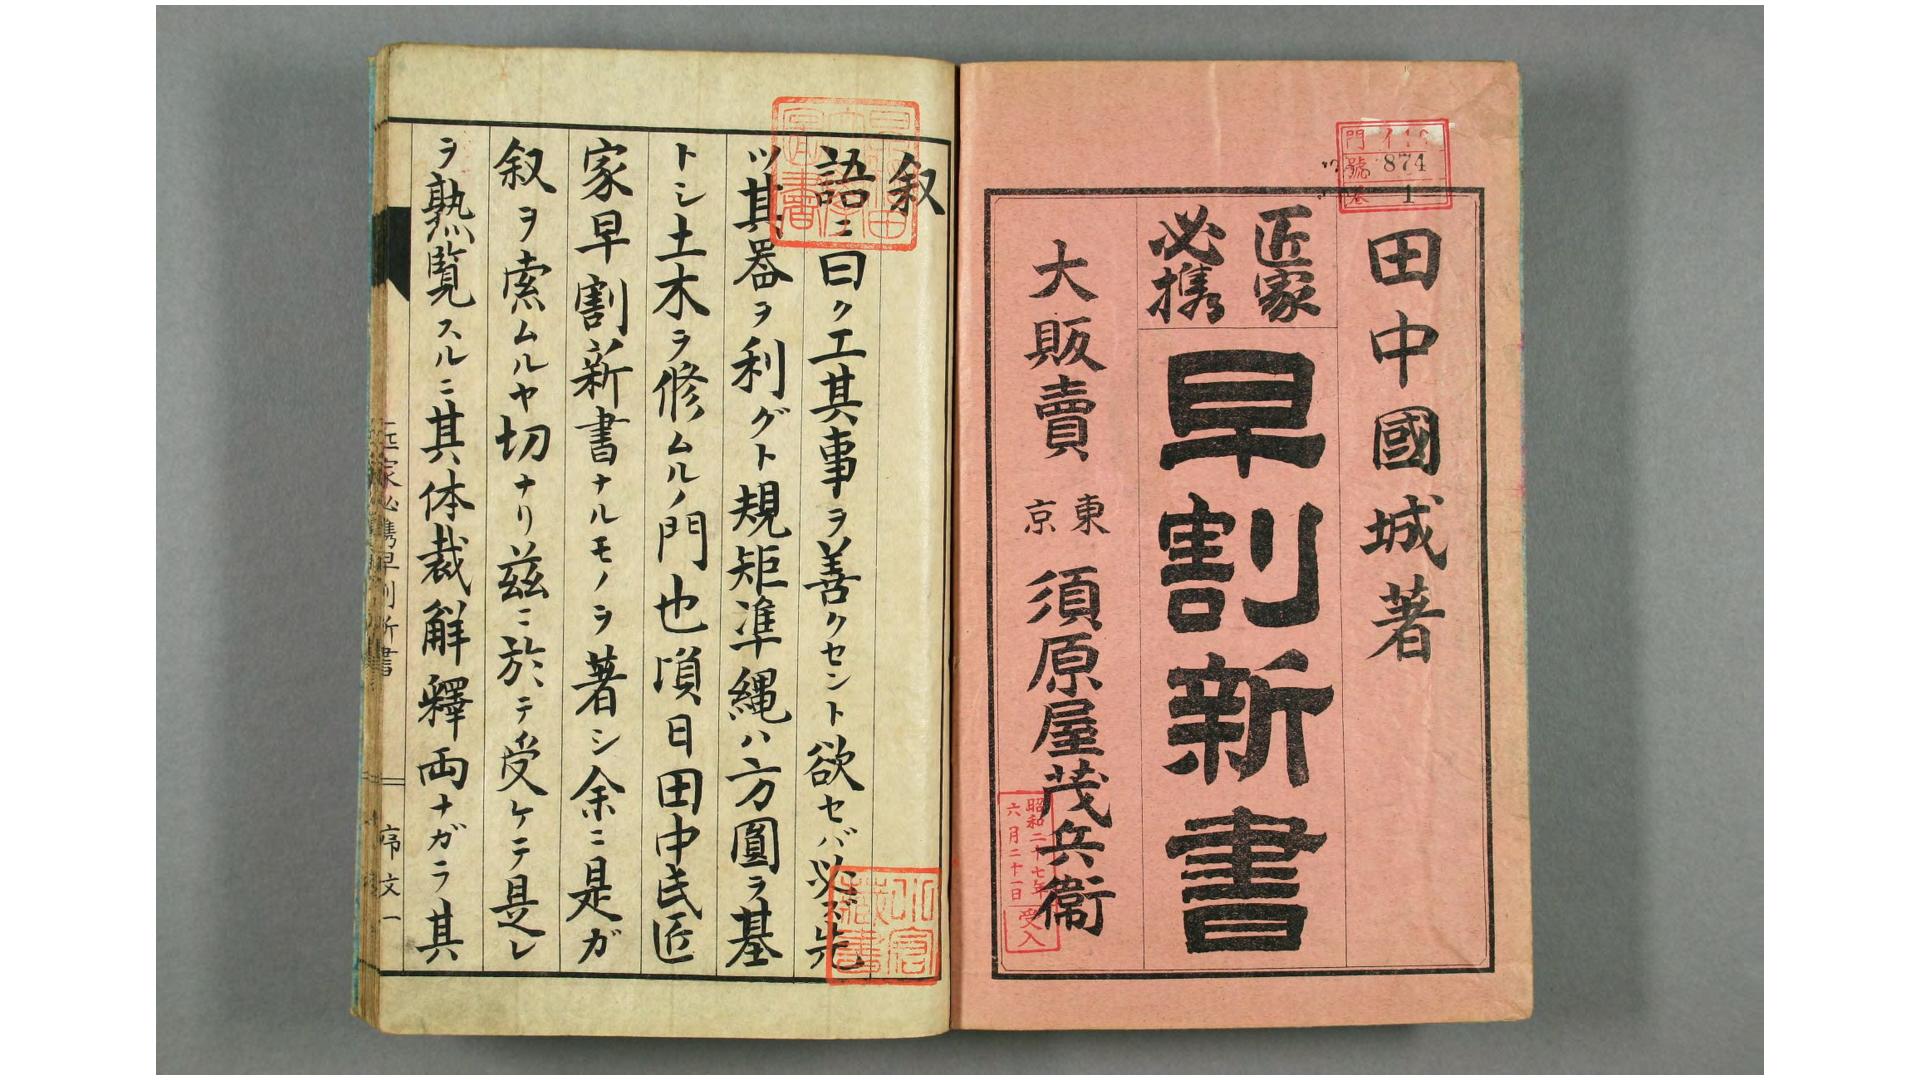 田中國城著
匠家
必携
早割新書
大販賣
東京
須原屋茂兵衞
門
號 874
卷 1
昭和二十七年
六月二十一日
受入
叙
語ニ曰ク工其事ヲ善クセント欲セバ必ズ先
ツ其器ヲ利グト規矩準縄ハ方圓ヲ基
トシ土木ヲ修ムルノ門也頃日田中氏匠
家早割新書ナルモノヲ著シ余ニ是ガ
叙ヲ索ムルヤ切ナリ茲ニ於テ受ケテ是レ
ヲ熟覧スルニ其体裁解釋両ナガラ其
匠家必携早割新書
序文一